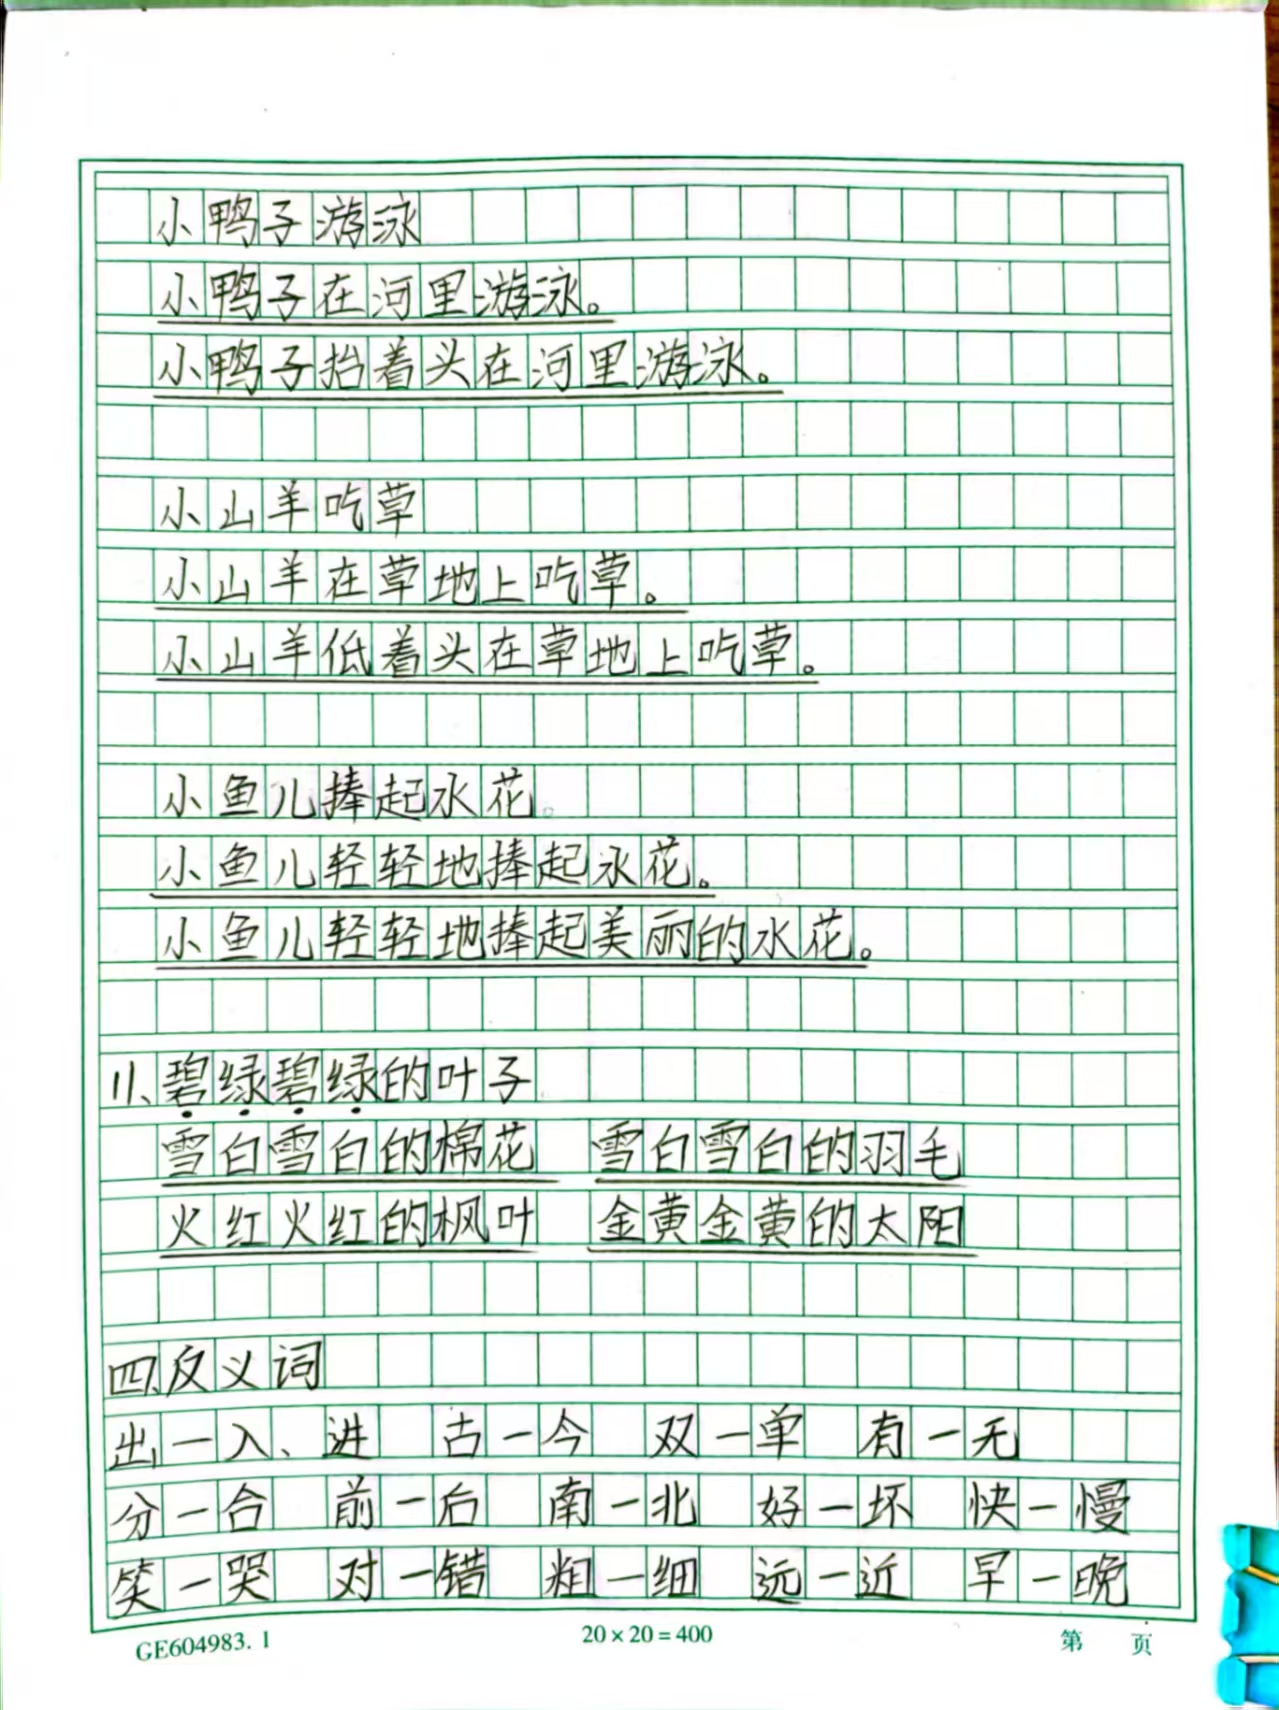 小鸭子游泳
小鸭子在河里游泳。
小鸭子抬着头在河里游泳。
小山羊吃草
小山羊在草地上吃草。
小山羊低着头在草地上吃草。
小鱼儿捧起水花。
小鱼儿轻轻地捧起水花。
小鱼儿轻轻地捧起美丽的水花。
11、碧绿碧绿的叶子
雪白雪白的棉花 雪白雪白的羽毛
火红火红的枫叶 金黄金黄的太阳
四、反义词
出—入、进 古—今 双—单 有—无
分—合 前—后 南—北 好—坏 快—慢
笑—哭 对—错 粗—细 远—近 早—晚
GE604983.1 20×20=400 第 页